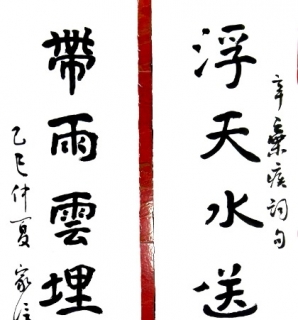 辛棄疾詞句
浮天水送
帶雨雲埋
乙巳仲夏家